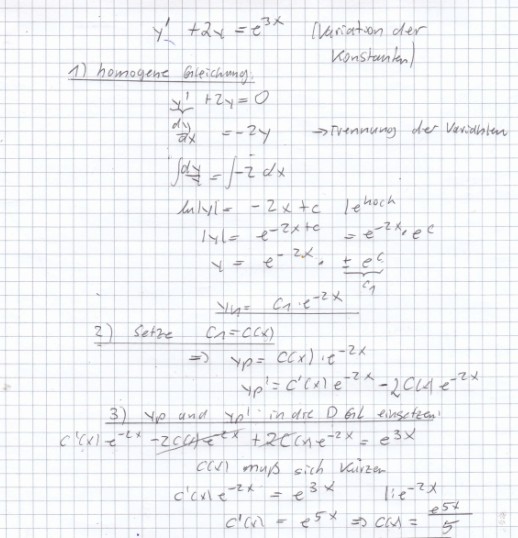 y' + 2y = e^{3x} (Variation der
Konstanten)
1) homogene Gleichung:
y' + 2y = 0
dy/dx = -2y → Trennung der Variablen
∫dy/y = ∫-2 dx
ln|y| = -2x + c | e^{hoch}
|y| = e^{-2x+c} = e^{-2x} · e^c
y = e^{-2x} · ± e^c
C₁
y_h = C₁ · e^{-2x}
2) Setze C₁ = C(x)
⇒ yp = C(x) · e^{-2x}
yp' = C'(x) e^{-2x} - 2C(x) e^{-2x}
3) yp und yp' in die DGL einsetzen:
C'(x) e^{-2x} - 2C(x) e^{-2x} + 2C(x) e^{-2x} = e^{3x}
C(x) muß sich kürzen
C'(x) e^{-2x} = e^{3x} |: e^{-2x}
C'(x) = e^{5x} ⇒ C(x) = e^{5x}/5